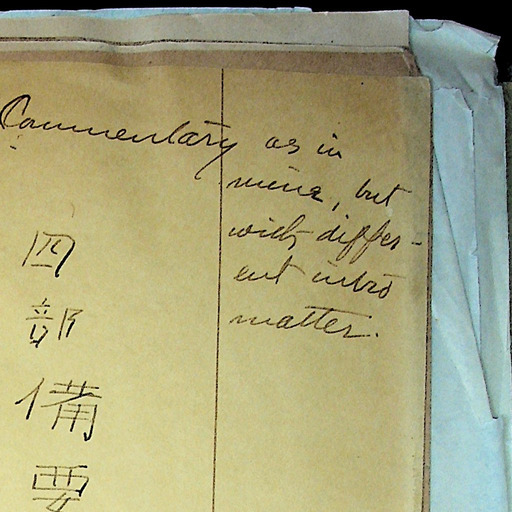 Commentary as in
mine, but
with differ-
ent intro
matter.
四
部
備
要